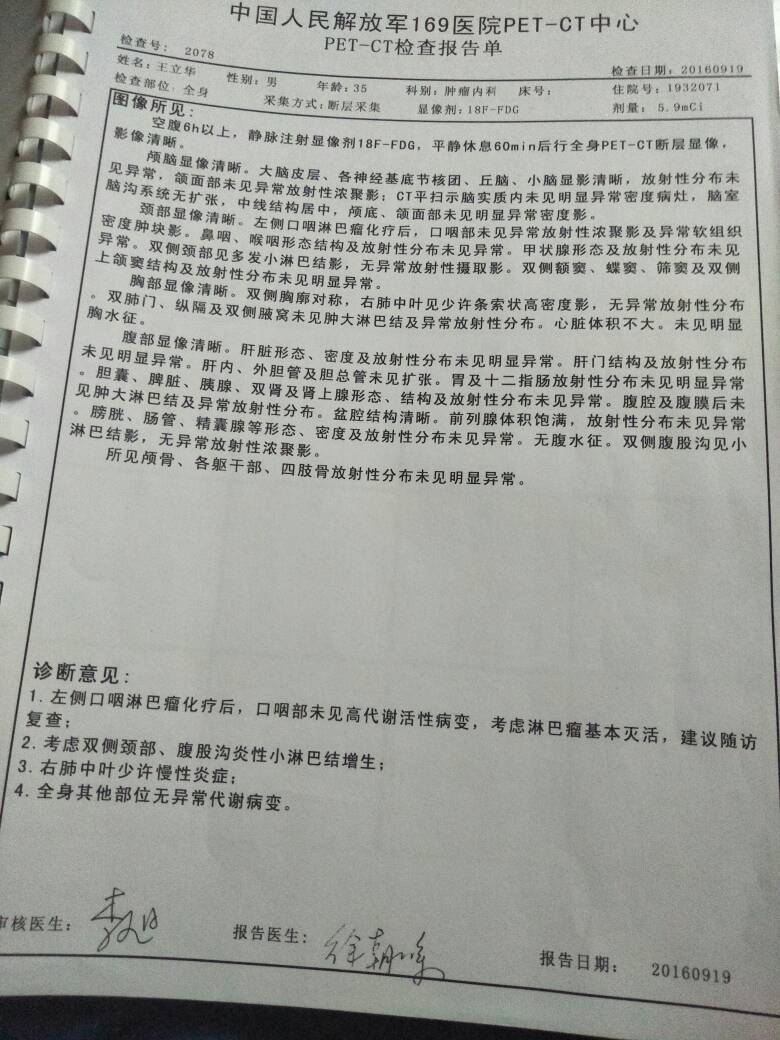 中国人民解放军169医院PET-CT中心
PET-CT检查报告单
检查号: 2078
检查日期: 20160919
姓名: 王立华 性别: 男 年龄: 35 科别: 肿瘤内科 床号: 住院号: 1932071
检查部位: 全身 采集方式: 断层采集 显像剂: 18F-FDG 剂量: 5.9mCi
图像所见:
空腹6h以上，静脉注射显像剂18F-FDG，平静休息60min后行全身PET-CT断层显像，
影像清晰。
颅脑显像清晰。大脑皮层、各神经基底节核团、丘脑、小脑显影清晰，放射性分布未
见异常，颌面部未见异常放射性浓聚影；CT平扫示脑实质内未见明显异常密度病灶，脑室
脑沟系统无扩张，中线结构居中，颅底、颌面部未见明显异常密度影。
颈部显像清晰。左侧口咽淋巴瘤化疗后，口咽部未见异常放射性浓聚影及异常软组织
密度肿块影。鼻咽、喉咽形态结构及放射性分布未见异常。甲状腺形态及放射性分布未见
异常。双侧颈部见多发小淋巴结影，无异常放射性摄取影。双侧额窦、蝶窦、筛窦及双侧
上颌窦结构及放射性分布未见明显异常。
胸部显像清晰。双侧胸廓对称，右肺中叶见少许条索状高密度影，无异常放射性分布
。双肺门、纵隔及双侧腋窝未见肿大淋巴结及异常放射性分布。心脏体积不大。未见明显
胸水征。
腹部显像清晰。肝脏形态、密度及放射性分布未见明显异常。肝门结构及放射性分布
未见明显异常。肝内、外胆管及胆总管未见扩张。胃及十二指肠放射性分布未见明显异常
。胆囊、脾脏、胰腺、双肾及肾上腺形态、结构及放射性分布未见异常。腹腔及腹膜后未
见肿大淋巴结及异常放射性分布。盆腔结构清晰。前列腺体积饱满，放射性分布未见异常
。膀胱、肠管、精囊腺等形态、密度及放射性分布未见异常。无腹水征。双侧腹股沟见小
淋巴结影，无异常放射性浓聚影。
所见颅骨、各躯干部、四肢骨放射性分布未见明显异常。
诊断意见:
1. 左侧口咽淋巴瘤化疗后，口咽部未见高代谢活性病变，考虑淋巴瘤基本灭活，建议随访
复查；
2. 考虑双侧颈部、腹股沟炎性小淋巴结增生；
3. 右肺中叶少许慢性炎症；
4. 全身其他部位无异常代谢病变。
审核医生: 报告医生: 报告日期: 20160919